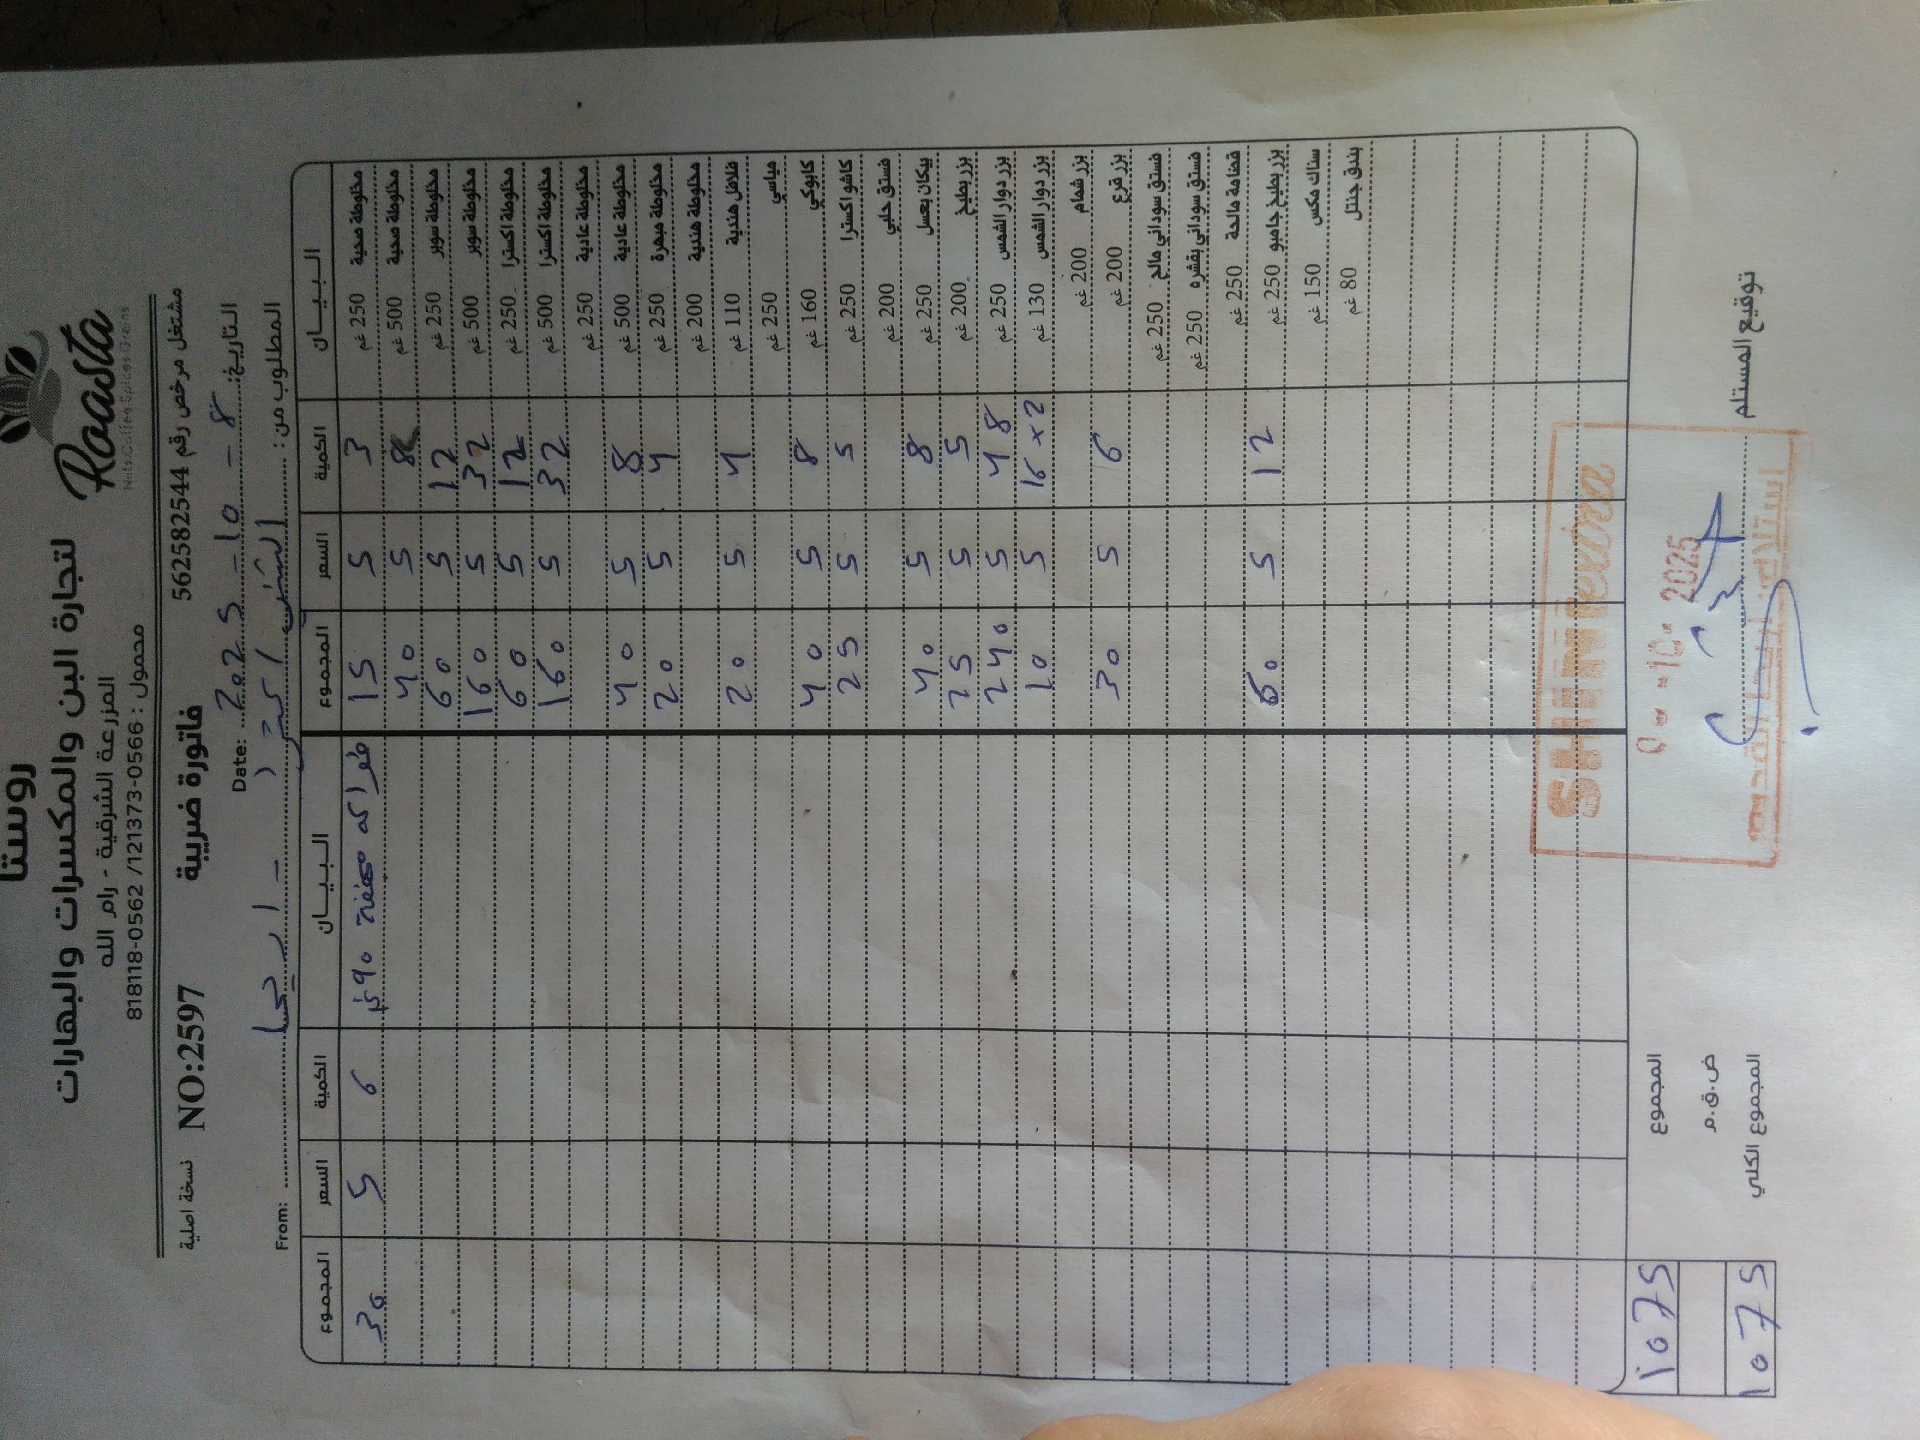 روستا
لتجارة البن والمكسرات والبهارات
المزرعة الشرقية - رام الله
محمول : 0566-1213731/ 0562-818118
Roasta
Nuts.Coffee.Spices.Grains
مشتغل مرخص رقم 562582544
فاتورة ضريبية
NO:2597
نسخة اصلية
التاريخ: 8 - 10 - 2025 Date:
المطلوب من : From:
البيـــان الكمية السعر المجموع البيـــان الكمية السعر المجموع
مخلوطة صحية 250 غم 3 5 15 فواكه مجففة 90غم 6 5 30
مخلوطة صحية 500 غم 8 5 40
مخلوطة سوبر 250 غم 12 5 60
مخلوطة سوبر 500 غم 32 5 160
مخلوطة اكسترا 250 غم 12 5 60
مخلوطة اكسترا 500 غم 32 5 160
مخلوطة عادية 250 غم
مخلوطة عادية 500 غم 8 5 40
مخلوطة مبهرة 250 غم 4 5 20
مخلوطة هندية 200 غم
فلافل هندية 110 غم 4 5 20
مياسي 250 غم
كابوكي 160 غم 8 5 40
كاشو اكسترا 250 غم 5 5 25
فستق حلبي 200 غم
بيكان بعسل 250 غم 8 5 40
بزر بطيخ 200 غم 5 5 25
بزر دوار الشمس 250 غم 48 5 240
بزر دوار الشمس 130 غم 16 × 2 5 10
بزر شمام 200 غم
بزر قرع 200 غم 6 5 30
فستق سوداني مالح 250 غم
فستق سوداني بقشره 250 غم
قضامة مالحة 250 غم
بزر بطيخ جامبو 250 غم 12 5 60
سناك مكس 150 غم
بندق جنتل 80 غم
المجموع 1075
ض.ق.م
المجموع الكلي 1075
توقيع المستلم
SHINI extra
-10- 2025